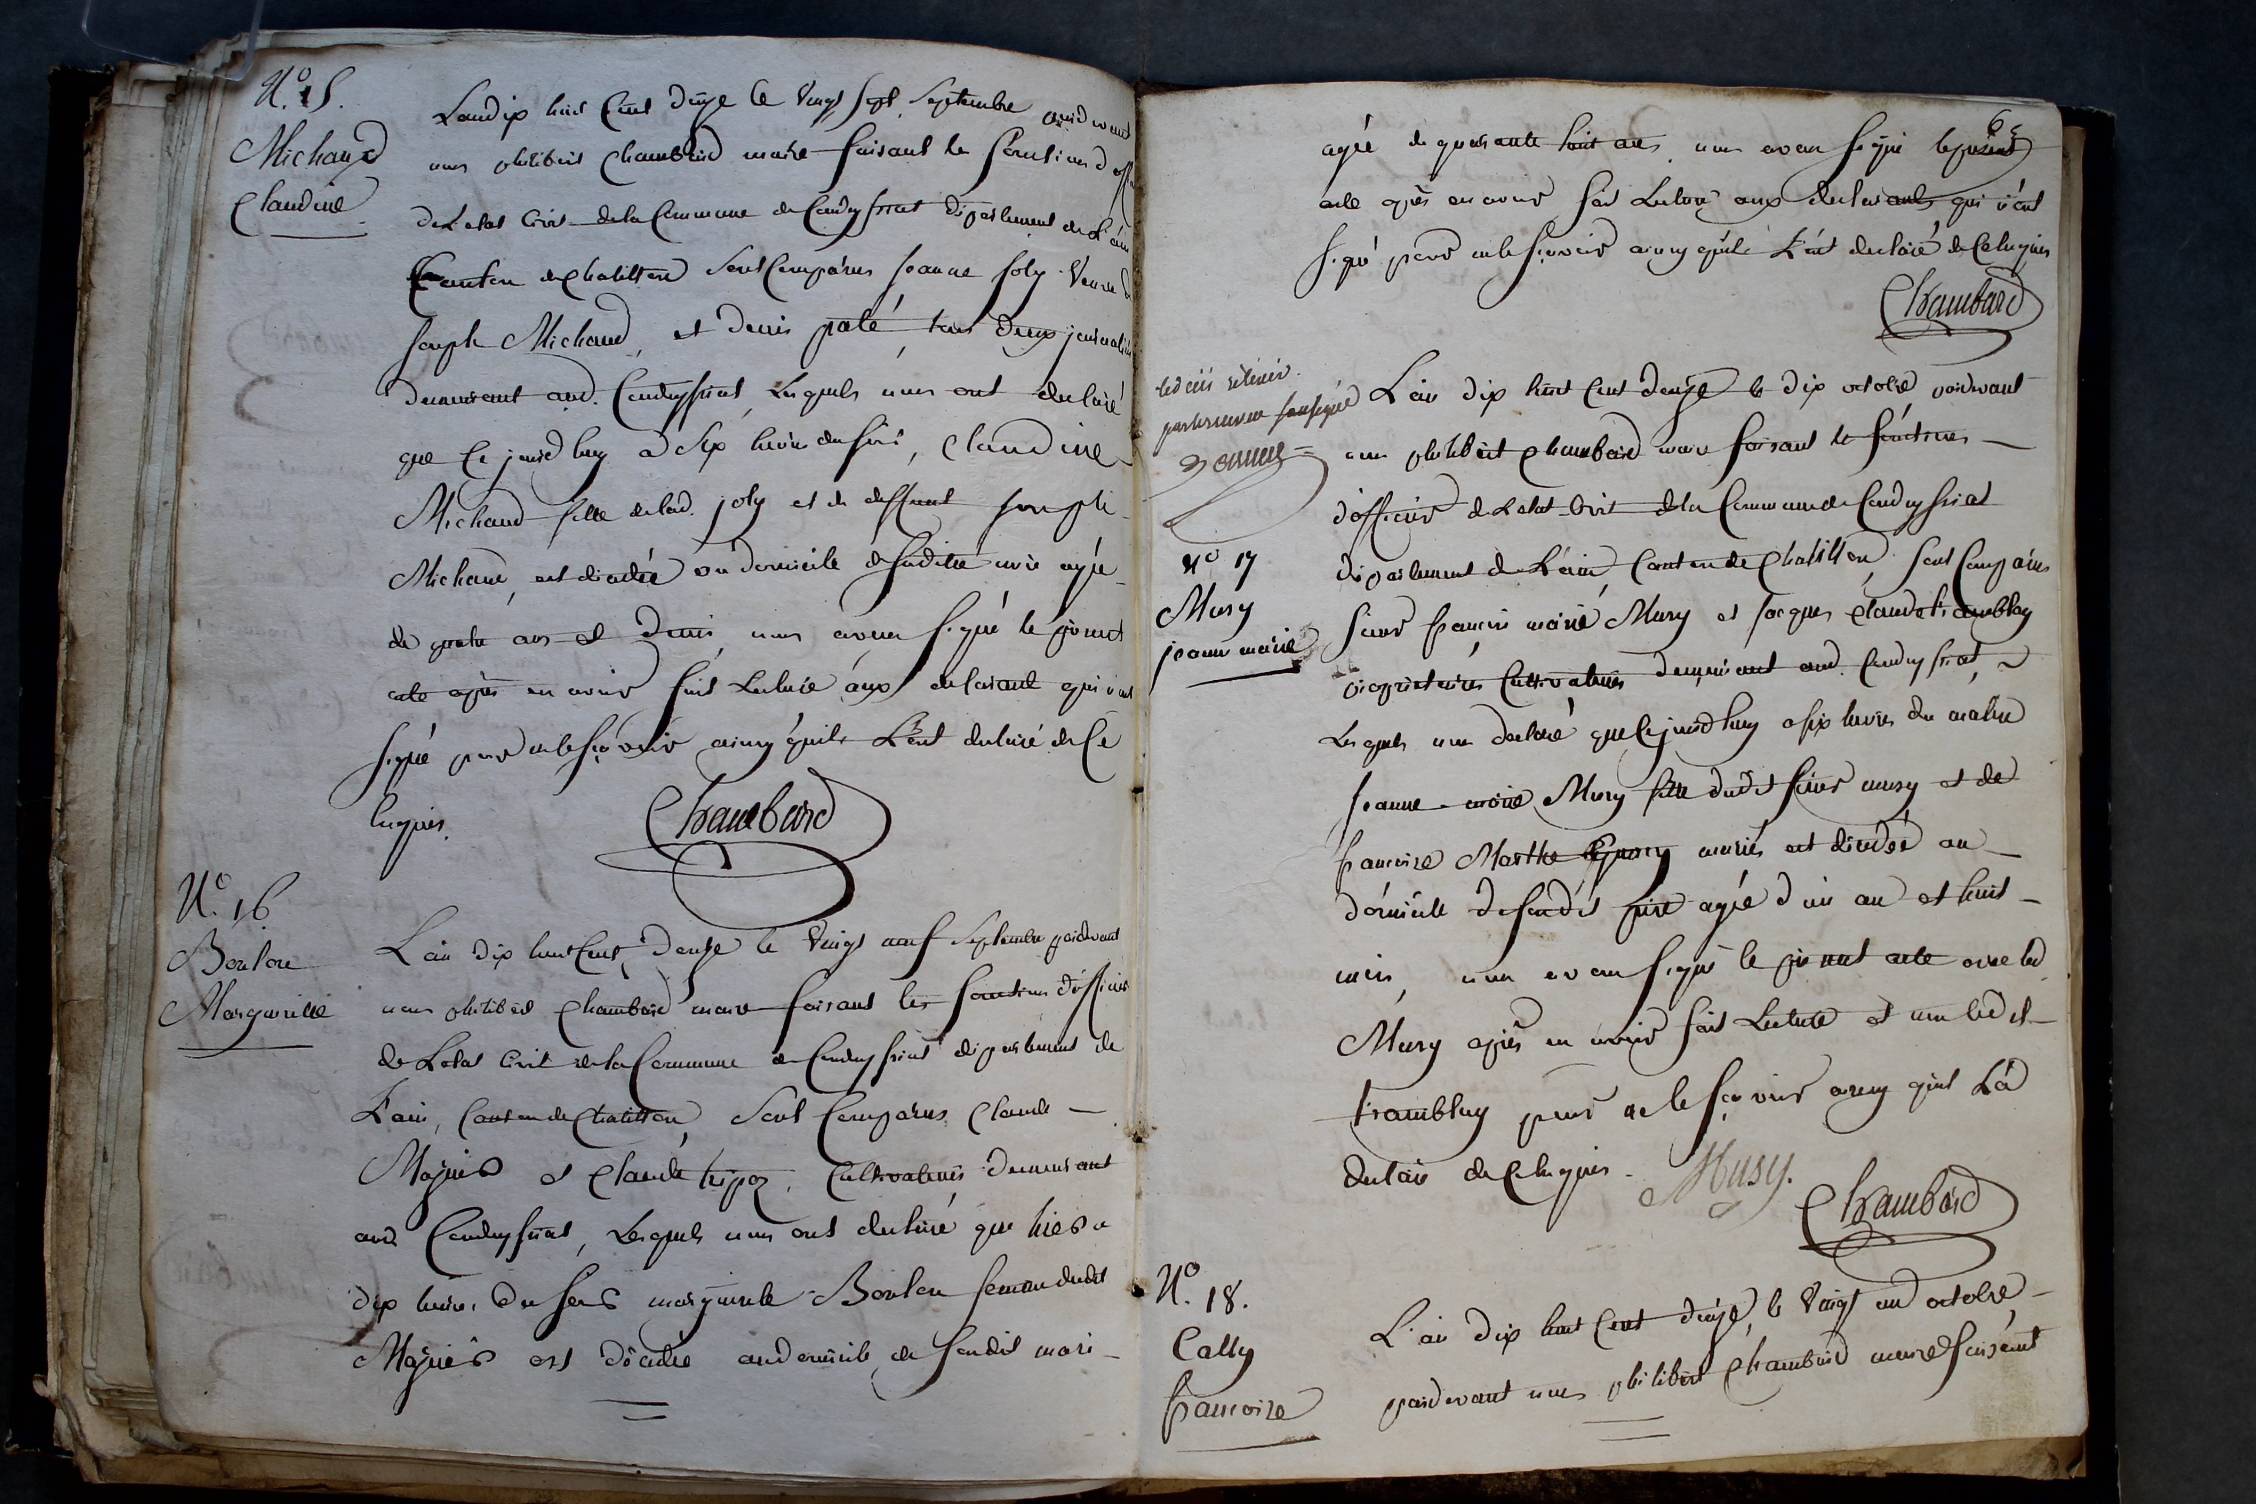 N.º 15.
Michaud
Claudine
Lan dix huit Cent douze le Vingt sept Septembre pardevant
nous philibert Chambard maire faisant les fonctions d'off
de L'etat Civil de la Commune de Condeyssiat département de L'ain
Canton de Chatillon sont Comparus jeanne joly Veuve de
joseph Michaud, et denis paté, tous deux journaliers
demeurant aud. Condeyssiat, Lesquels nous ont declaré
que Cejourd'huy a six heures du soir, Claudine
Michaud fille de lad. joly et de deffunt joseph
Michaud, est dicedée au domicile de saditte mere agée
de quatre ans et demi, nous avons signé le présent
acte après en avoir fait Lecture aux declarants qui n'ont
signé pour ne le sçavoir ainsy qu'ils L'ont declaré de Ce
Enquis.
Chambard
N.º 16
Boulon
Marguerite
L'an dix huit Cent douze le Vingt neuf Septembre pardevant
nous philibert Chambard maire faisant les fonctions d'officier
de L'etat Civil de la Commune de Condeyssiat département de
L'ain, Canton de Chatillon, sont Comparus Claude
Majnier et Claude tripoz, Cultivateurs demeurant
aud. Condeyssiat, Lesquels nous ont declaré que hier a
dix heures du soir marguerite Boulon femme dudit
Majnier est décedée au domicile de sondit mari
65
agée de quarante huit ans, nous avons signé le présent
acte après en avoir fait Lecture aux declarants qui n'ont
signé pour ne le sçavoir ainsy qu'ils L'ont declaré de Ce Enquis
Chambard
par le receveur soussigné
N.º 17
Musy
jeanne marie
L'an dix huit Cent douze le dix octobre pardevant
nous philibert Chambard maire faisant les fonctions
d'officier de L'etat Civil de la Commune de Condeyssiat
département de L'ain, Canton de Chatillon, sont Comparus
sieur françois marie Musy et jacques Claude trambley
propriétaires Cultivateurs demeurant aud. Condeyssiat,
Lesquels nous declaré que Cejourd'huy a six heures du matin
jeanne marie Musy fille dudit sieur musy et de
françoise Marthe mariés est dicedée au
domicile de sondit pere agée d'un an et huit
mois, nous avons signé le présent acte avec led.
Musy après en avoir fait Lecture et non ledit
trambley pour ne le sçavoir ainsy qu'il L'a
declaré de Ce Enquis.
Musy.
Chambard
N.º 18.
Cally
françoise
L'an dix huit Cent douze, le Vingt un octobre
pardevant nous philibert Chambard maire faisant